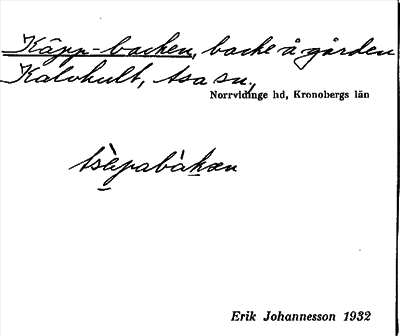 Käpp-backen, backe å gården
Kalvhult, Asa sn.,
Norrvidinge hd, Kronobergs län
Erik Johannesson 1932